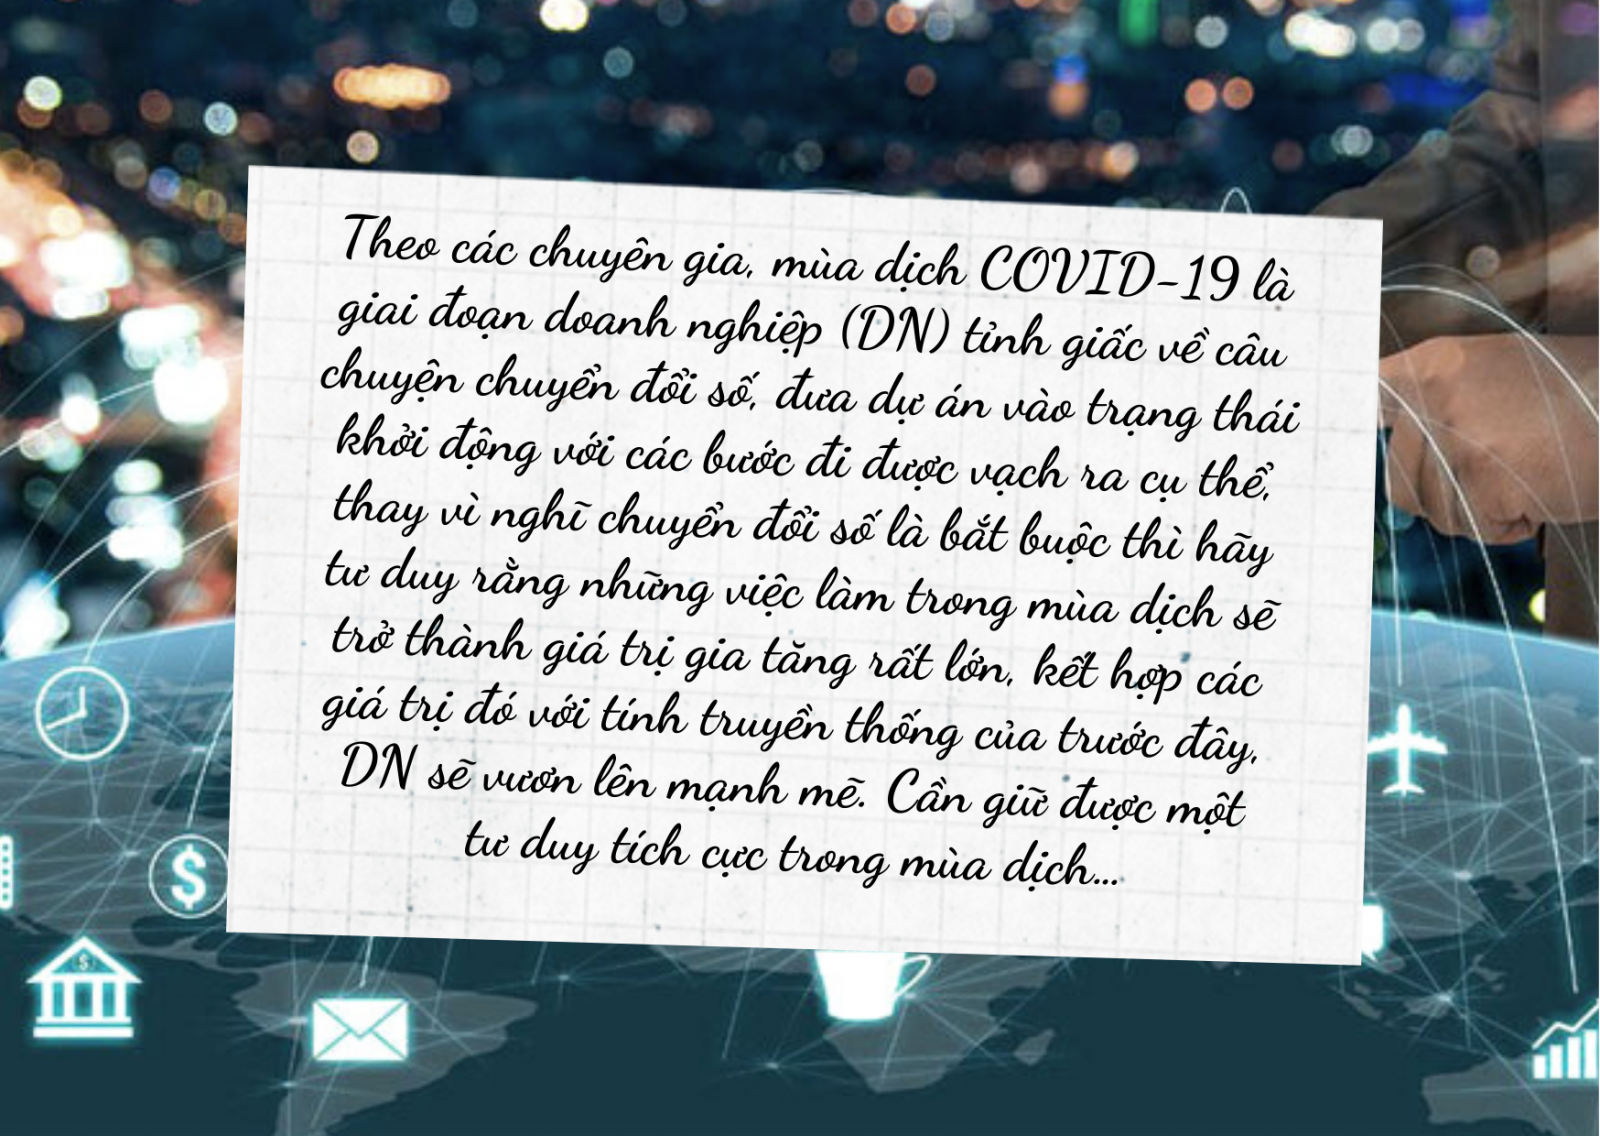 Theo các chuyên gia, mùa dịch COVID-19 là
giai đoạn doanh nghiệp (DN) tỉnh giấc về câu
chuyện chuyển đổi số, đưa dự án vào trạng thái
khởi động với các bước đi được vạch ra cụ thể,
thay vì nghĩ chuyển đổi số là bắt buộc thì hãy
tư duy rằng những việc làm trong mùa dịch sẽ
trở thành giá trị gia tăng rất lớn, kết hợp các
giá trị đó với tính truyền thống của trước đây,
DN sẽ vươn lên mạnh mẽ. Cần giữ được một
tư duy tích cực trong mùa dịch...
$
$